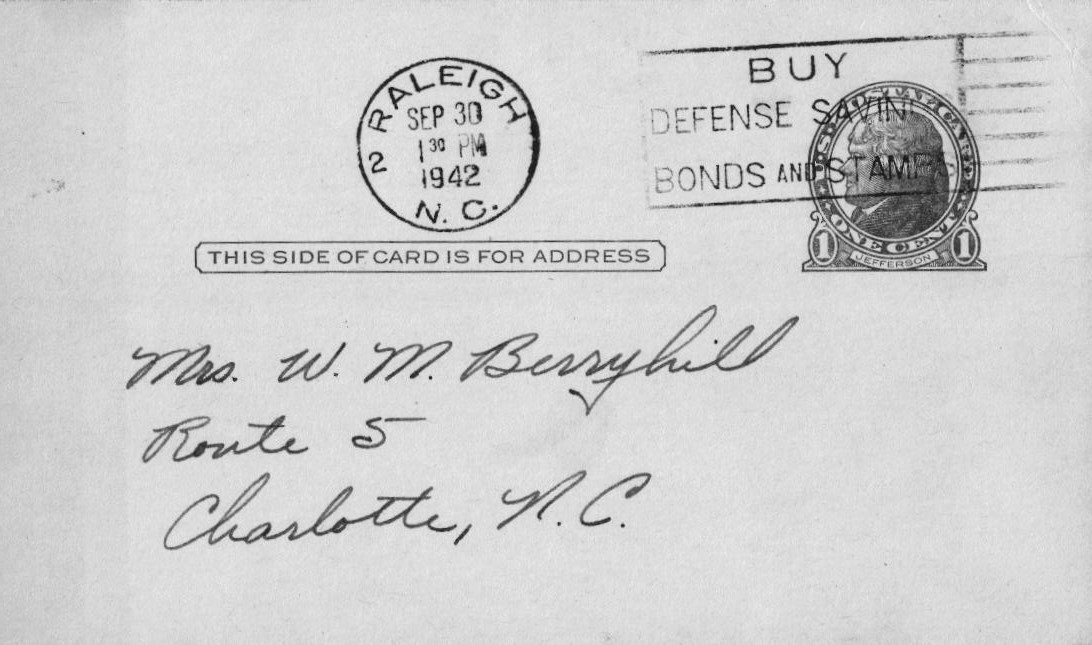 RALEIGH
SEP 30
1 30 PM
1942
2
N. C.
BUY
DEFENSE SAVIN
BONDS AND STAMPS
ONE CENT
1 1
JEFFERSON
THIS SIDE OF CARD IS FOR ADDRESS
Mrs. W. M. Berryhill
Route 5
Charlotte, N. C.